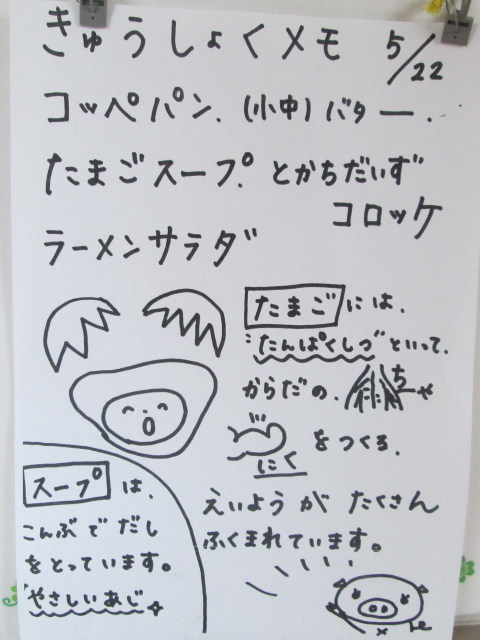 きゅうしょくメモ 5/22
コッペパン、(小中)バター、
たまごスープ、とかちだいず
コロッケ
ラーメンサラダ
たまごには、
"たんぱくしつ"といって、
からだの、ちや
にくをつくる、
えいようがたくさん
ふくまれています。
スープは、
こんぶでだし
をとっています。
やさしいあじ